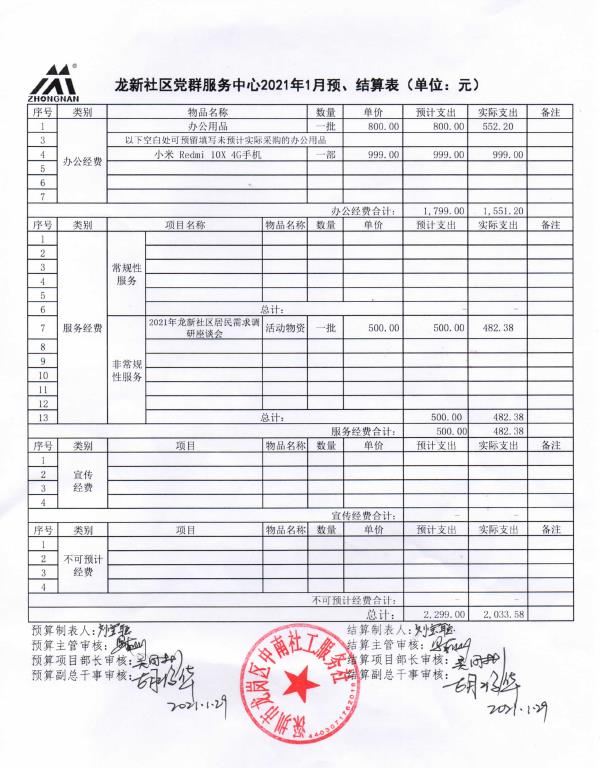 ZHONGNAN
龙新社区党群服务中心2021年1月预、结算表（单位：元）
序号 类别 物品名称 数量 单价 预计支出 实际支出 备注
办公经费
1 办公用品 一批 800.00 800.00 552.20
3 以下空白处可预留填写未预计实际采购的办公用品
4 小米 Redmi 10X 4G手机 一部 999.00 999.00 999.00
5
6
7
办公经费合计： 1,799.00 1,551.20
序号 类别 项目名称 物品名称 数量 单价 预计支出 实际支出 备注
服务经费
1
2
3 常规性
4 服务
5
6 总计： - -
7 2021年龙新社区居民需求调 活动物资 一批 500.00 500.00 482.38
研座谈会
8
9 非常规
10 性服务
11
12
13 总计： 500.00 482.38
服务经费合计： 500.00 482.38
序号 类别 项目 物品名称 数量 单价 预计支出 实际支出 备注
1
2 宣传
3 经费
4
宣传经费合计： - -
序号 类别 项目 物品名称 数量 单价 预计支出 实际支出 备注
1
2 不可预计
3 经费
4
不可预计经费合计： - -
总计： 2,299.00 2,033.58
预算制表人： 结算制表人：
预算主管审核： 结算主管审核：
预算项目部长审核： 结算项目部长审核：
预算副总干事审核： 结算副总干事审核：
2021.1.29 2021.1.29
深圳市龙岗区中南社工服务社